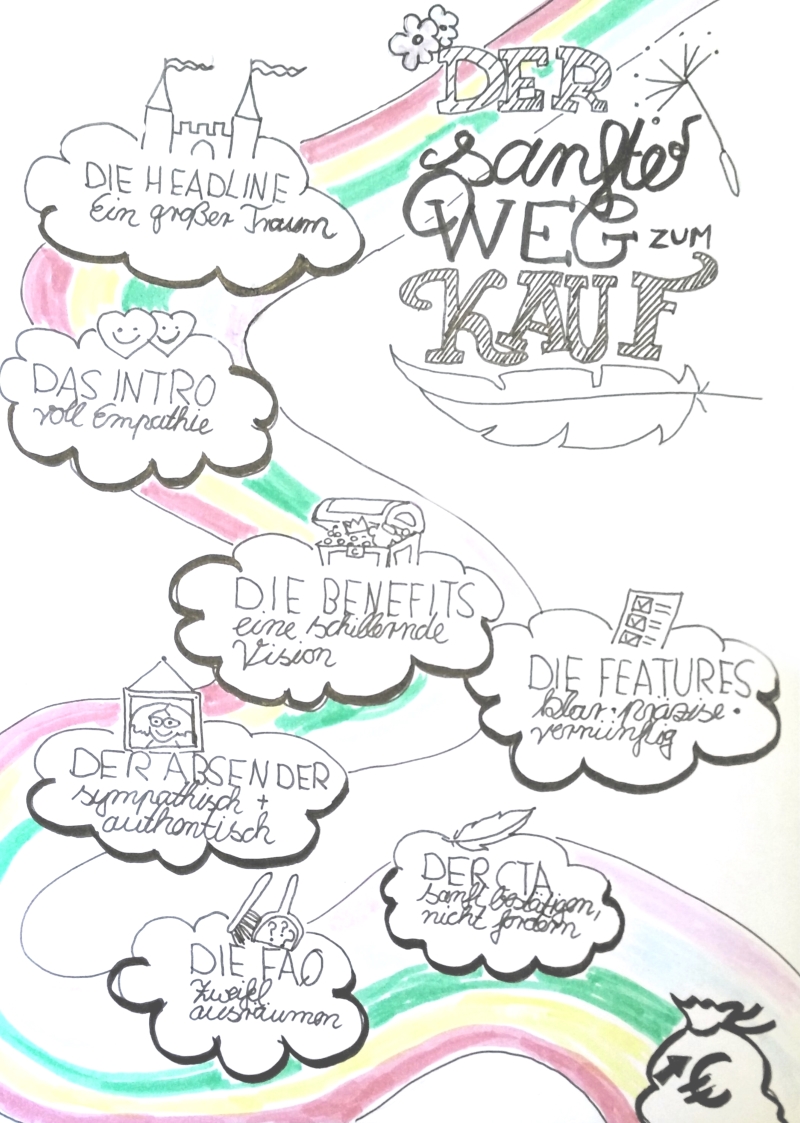 DER
sanfte
WEG ZUM
KAUF
DIE HEADLINE
Ein großer Traum
DAS INTRO
voll Empathie
DIE BENEFITS
eine schillernde
Vision
DIE FEATURES
klar · präzise ·
vernünftig
DER ABSENDER
sympathisch +
authentisch
DER CTA
sanft bestätigen,
nicht fordern
??
DIE FAQ
Zweifel
ausräumen
€